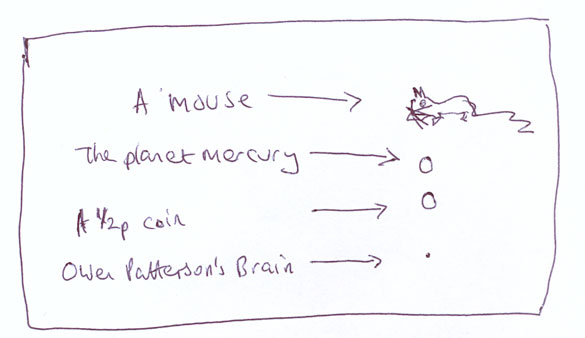 A mouse
The planet mercury
A 1/2p coin
Owen Patterson's Brain